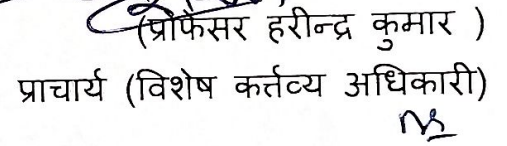 (प्रोफेसर हरीन्द्र कुमार )
प्राचार्य (विशेष कर्त्तव्य अधिकारी)